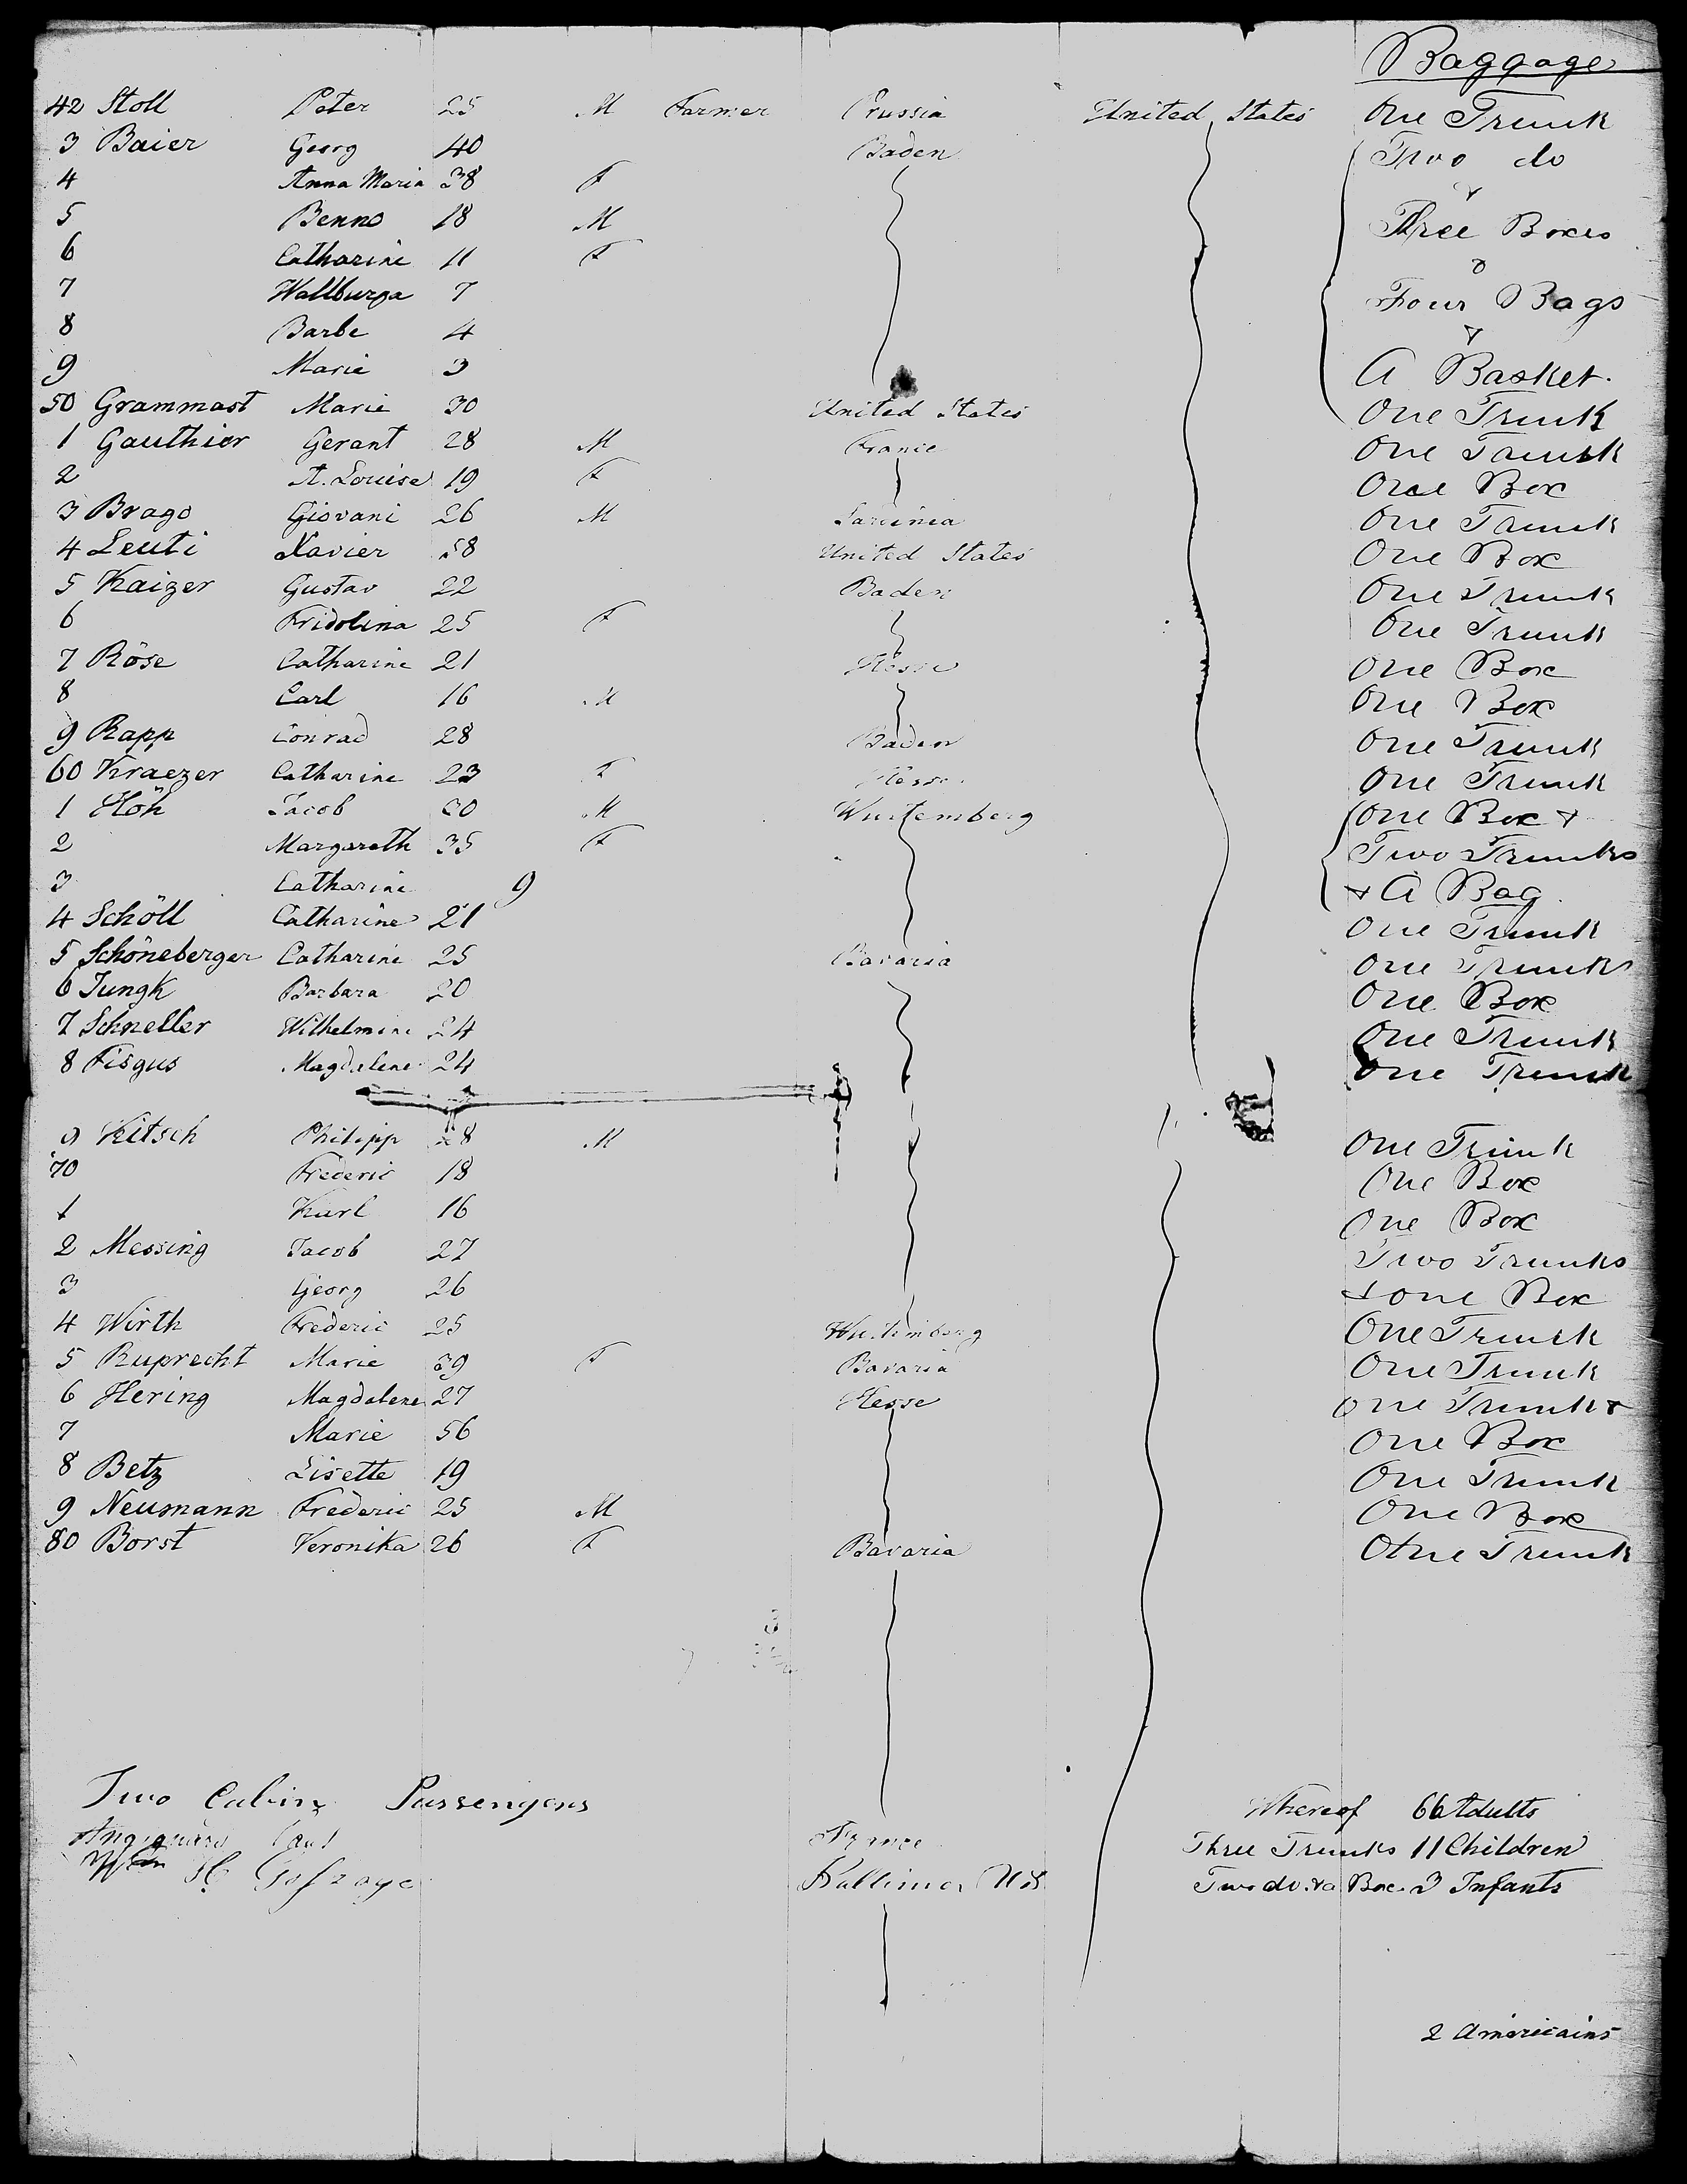 Baggage
42 Stoll Peter 25 M Farmer Prussia United States One Trunk
3 Baier Georg 40 Baden Two do
4 Anna Maria 38 F &
5 Benno 18 M Three Boxes
6 Catharine 11 F &
7 Wallburga 7 Four Bags
8 Barbe 4 &
9 Marie 3 A Basket.
50 Grammast Marie 30 United States One Trunk
1 Gauthier Gerant 28 M France One Trunk
2 A. Louise 19 F One Box
3 Brago Giovani 26 M Sardinia One Trunk
4 Leuti Xavier 58 United States One Box
5 Kaizer Gustav 22 Baden One Trunk
6 Fridolina 25 F One Trunk
7 Röse Catharine 21 Hesse One Box
8 Carl 16 M One Box
9 Rapp Conrad 28 Baden One Trunk
60 Kraezer Catharine 23 F Hesse One Trunk
1 Höh Jacob 30 M Wurtemberg One Box &
2 Margareth 35 F Two Trunks
3 Catharine 9 & A Bag.
4 Schöll Catharine 21 One Trunk
5 Schöneberger Catharine 25 Bavaria One Trunk
6 Jungk Barbara 20 One Box
7 Schneller Wilhelmine 24 One Trunk
8 Fisgus Magdalene 24 One Trunk
9 Kitsch Philipp 28 M One Trunk
70 Frederic 18 One Box
1 Karl 16 One Box
2 Messing Jacob 27 Two Trunks
3 Georg 26 & one Box
4 Wirth Frederic 25 Wurtemberg One Trunk
5 Ruprecht Marie 39 F Bavaria One Trunk
6 Hering Magdalene 27 Hesse One Trunk &
7 Marie 56 One Box
8 Betz Lisette 19 One Trunk
9 Neumann Frederic 25 M One Box
80 Borst Veronika 26 F Bavaria One Trunk
Two Cabin Passengers Whereof 66 Adults
Paul France Three Trunks 11 Children
Two do. & a Box 3 Infants
2 Americains